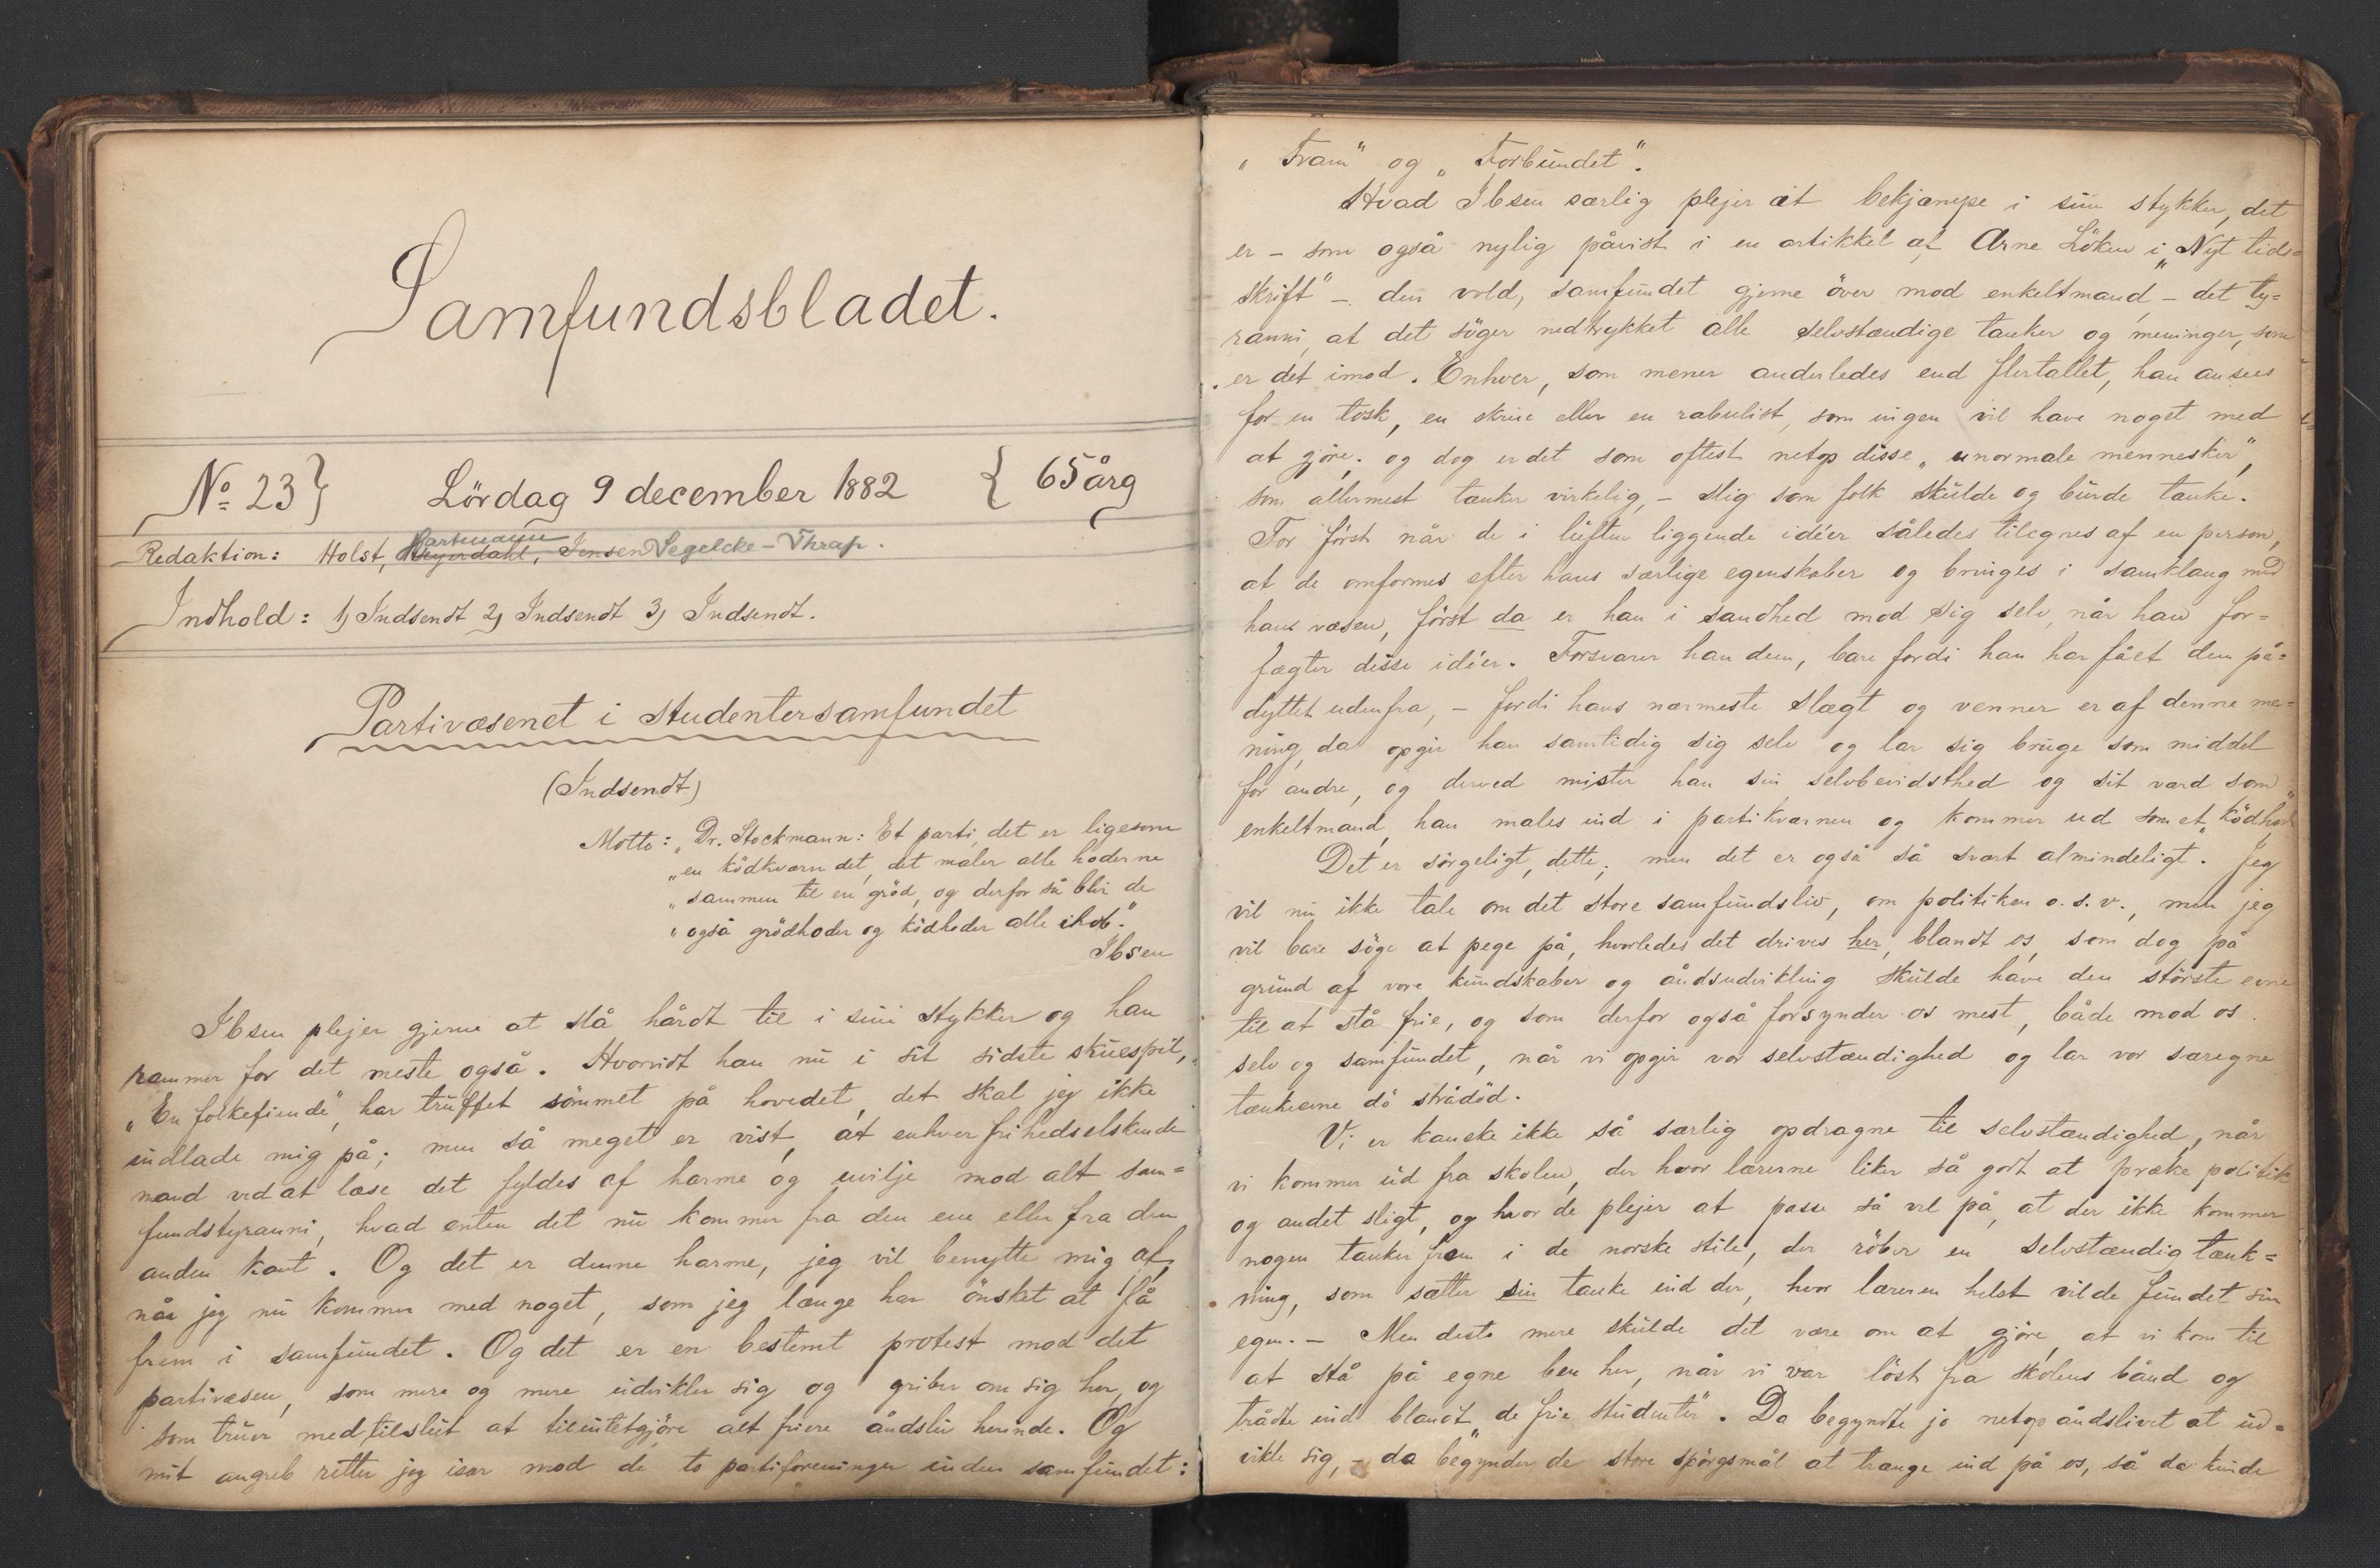 Samfundsbladet.
No 23} Lördag 9 december 1882 { 65 årg
Redaktion: Holst, Hartmann Heyerdahl, Jensen Segelcke - Thrap.
Indhold: 1, Indsendt 2, Indsendt 3, Indsendt.
Partivæsenet i studentersamfundet
(Indsendt)
Motto: „Dr. Stockmann: Et parti, det er ligesom
„en ködkværn det, det maler alle hoderne
„sammen til en gröd, og derfor så blir de
„også grödhoder og ködhoder allesammen ihob".
Ibsen
Ibsen plejer gjerne at slå hårdt til i sine stykker og han
rammer for det meste også. Hvorvidt han nu i sit sidste skuespil,
„En folkefiende", har truffet sömmet på hovedet, det skal jeg ikke
indlade mig på; men så meget er vist, at enhver frihedselskende
mand ved at læse det fyldes af harme og uvilje mod alt sam=
fundstyranni, hvad enten det nu kommer fra den ene eller fra den
anden kant. Og det er denne harme, jeg vil benytte mig af,
når jeg nu kommer med noget, som jeg længe har önsket at få
frem i samfundet. Og det er en bestemt protest mod det
partivæsen, som mere og mere udvikler sig og griber om sig her, og
som truer med tilslut at tilintetgjöre alt friere åndsliv herinde. Og
mit angreb retter jeg især mod de to partiforeninger inden samfundet:
„Fram" og „Forbundet".
Hvad Ibsen særlig plejer at bekjæmpe i sine stykker, det
er - som også nylig påvist i en artikkel af Arne Löken i „Nyt tids=
skrift" - den vold, samfundet gjerne över mod enkeltmand, - det ty=
ranni, at det söger nedtrykket alle selvstændige tanker og meninger, som
er det imod. Enhver, som mener anderledes end flertallet, han ansees
for en tosk, en skrue eller en rabulist, som ingen vil have noget med
at gjöre; og dog er det som oftest netop disse „unormale mennesker",
som allermest tænker virkelig, - slig som folk skulde og burde tænke.
For först når de i luften liggende idéer således tilegnes af en person,
at de omformes efter hans særlige egenskaber og bringes i samklang med
hans væsen, först da er han i sandhed mod sig selv, når han for=
fægter disse idéer. Forsvarer han dem, bare fordi han har fået dem på=
dyttet udenfra, - fordi hans nærmeste slægt og venner er af denne me=
ning, da opgir han samtidig sig selv og lar sig bruge som middel
for andre, og derved mister han sin selvbevidsthed og sit værd som
enkeltmand, han males ind i partikværnen og kommer ud som et „ködhode".
Det er sörgeligt, dette; men det er også så svært almindeligt. Jeg
vil nu ikke tale om det store samfundsliv, om politiken o.s.v., men jeg
vil bare söge at pege på, hvorledes det drives her, blandt os, som dog på
grund af vore kundskaber og åndsudvikling skulde have den störste evne
til at stå frie, og som derfor også forsynder os mest, både mod os
selv og samfundet, når vi opgir vor selvstændighed og lar vor særegne
tænkeevne dö strådöd.
Vi er kanske ikke så særlig opdragne til selvstændighed, når
vi kommer ud fra skolen, der hvor lærerne liker så godt at præke politik
og andet sligt, og hvor de plejer at passe så vel på, at der ikke kommer
nogen tanker frem i de norske stile, der röber en selvstændig tænk=
ning, som sætter sin tanke ind der, hvor læreren helst vilde fundet sin
egen. - Men desto mere skulde det være om at gjöre, at vi kom til
at stå på egne ben her, når vi var löst fra skolens bånd og
trådte ind blandt „de frie studenter". Da begyndte jo netop åndslivet at ud=
vikle sig, - da begynder de store spörgsmål at trænge ind på os, så da kunde